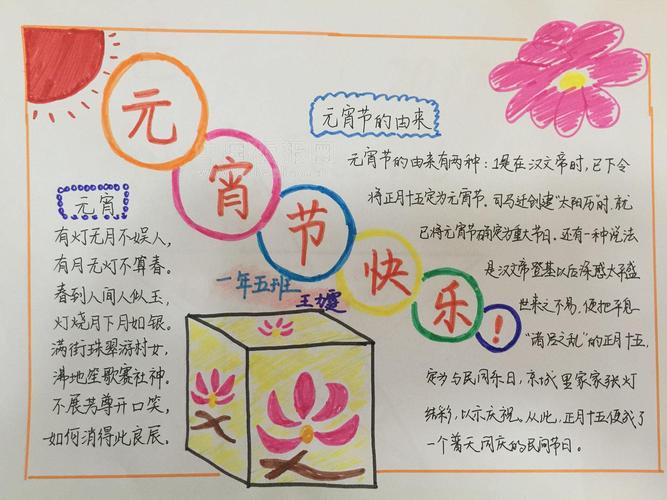 元宵节快乐!
元宵节的由来
元宵节的由来有两种:1是在汉文帝时,已下令
将正月十五定为元宵节.司马迁创建"太阳历"时,就
已将元宵节确定为重大节日.还有一种说法
是汉文帝登基以后深感太平盛
世来之不易,便把平息
"诸吕之乱"的正月十五,
定为与民同乐日,京城里家家张灯
结彩,以示庆祝。从此,正月十五便成了
一个普天同庆的民间节日。
元宵
有灯无月不娱人,
有月无灯不算春。
春到人间人似玉,
灯烧月下月如银。
满街珠翠游村女,
沸地笙歌赛社神。
不展芳尊开口笑,
如何消得此良辰。
一年五班